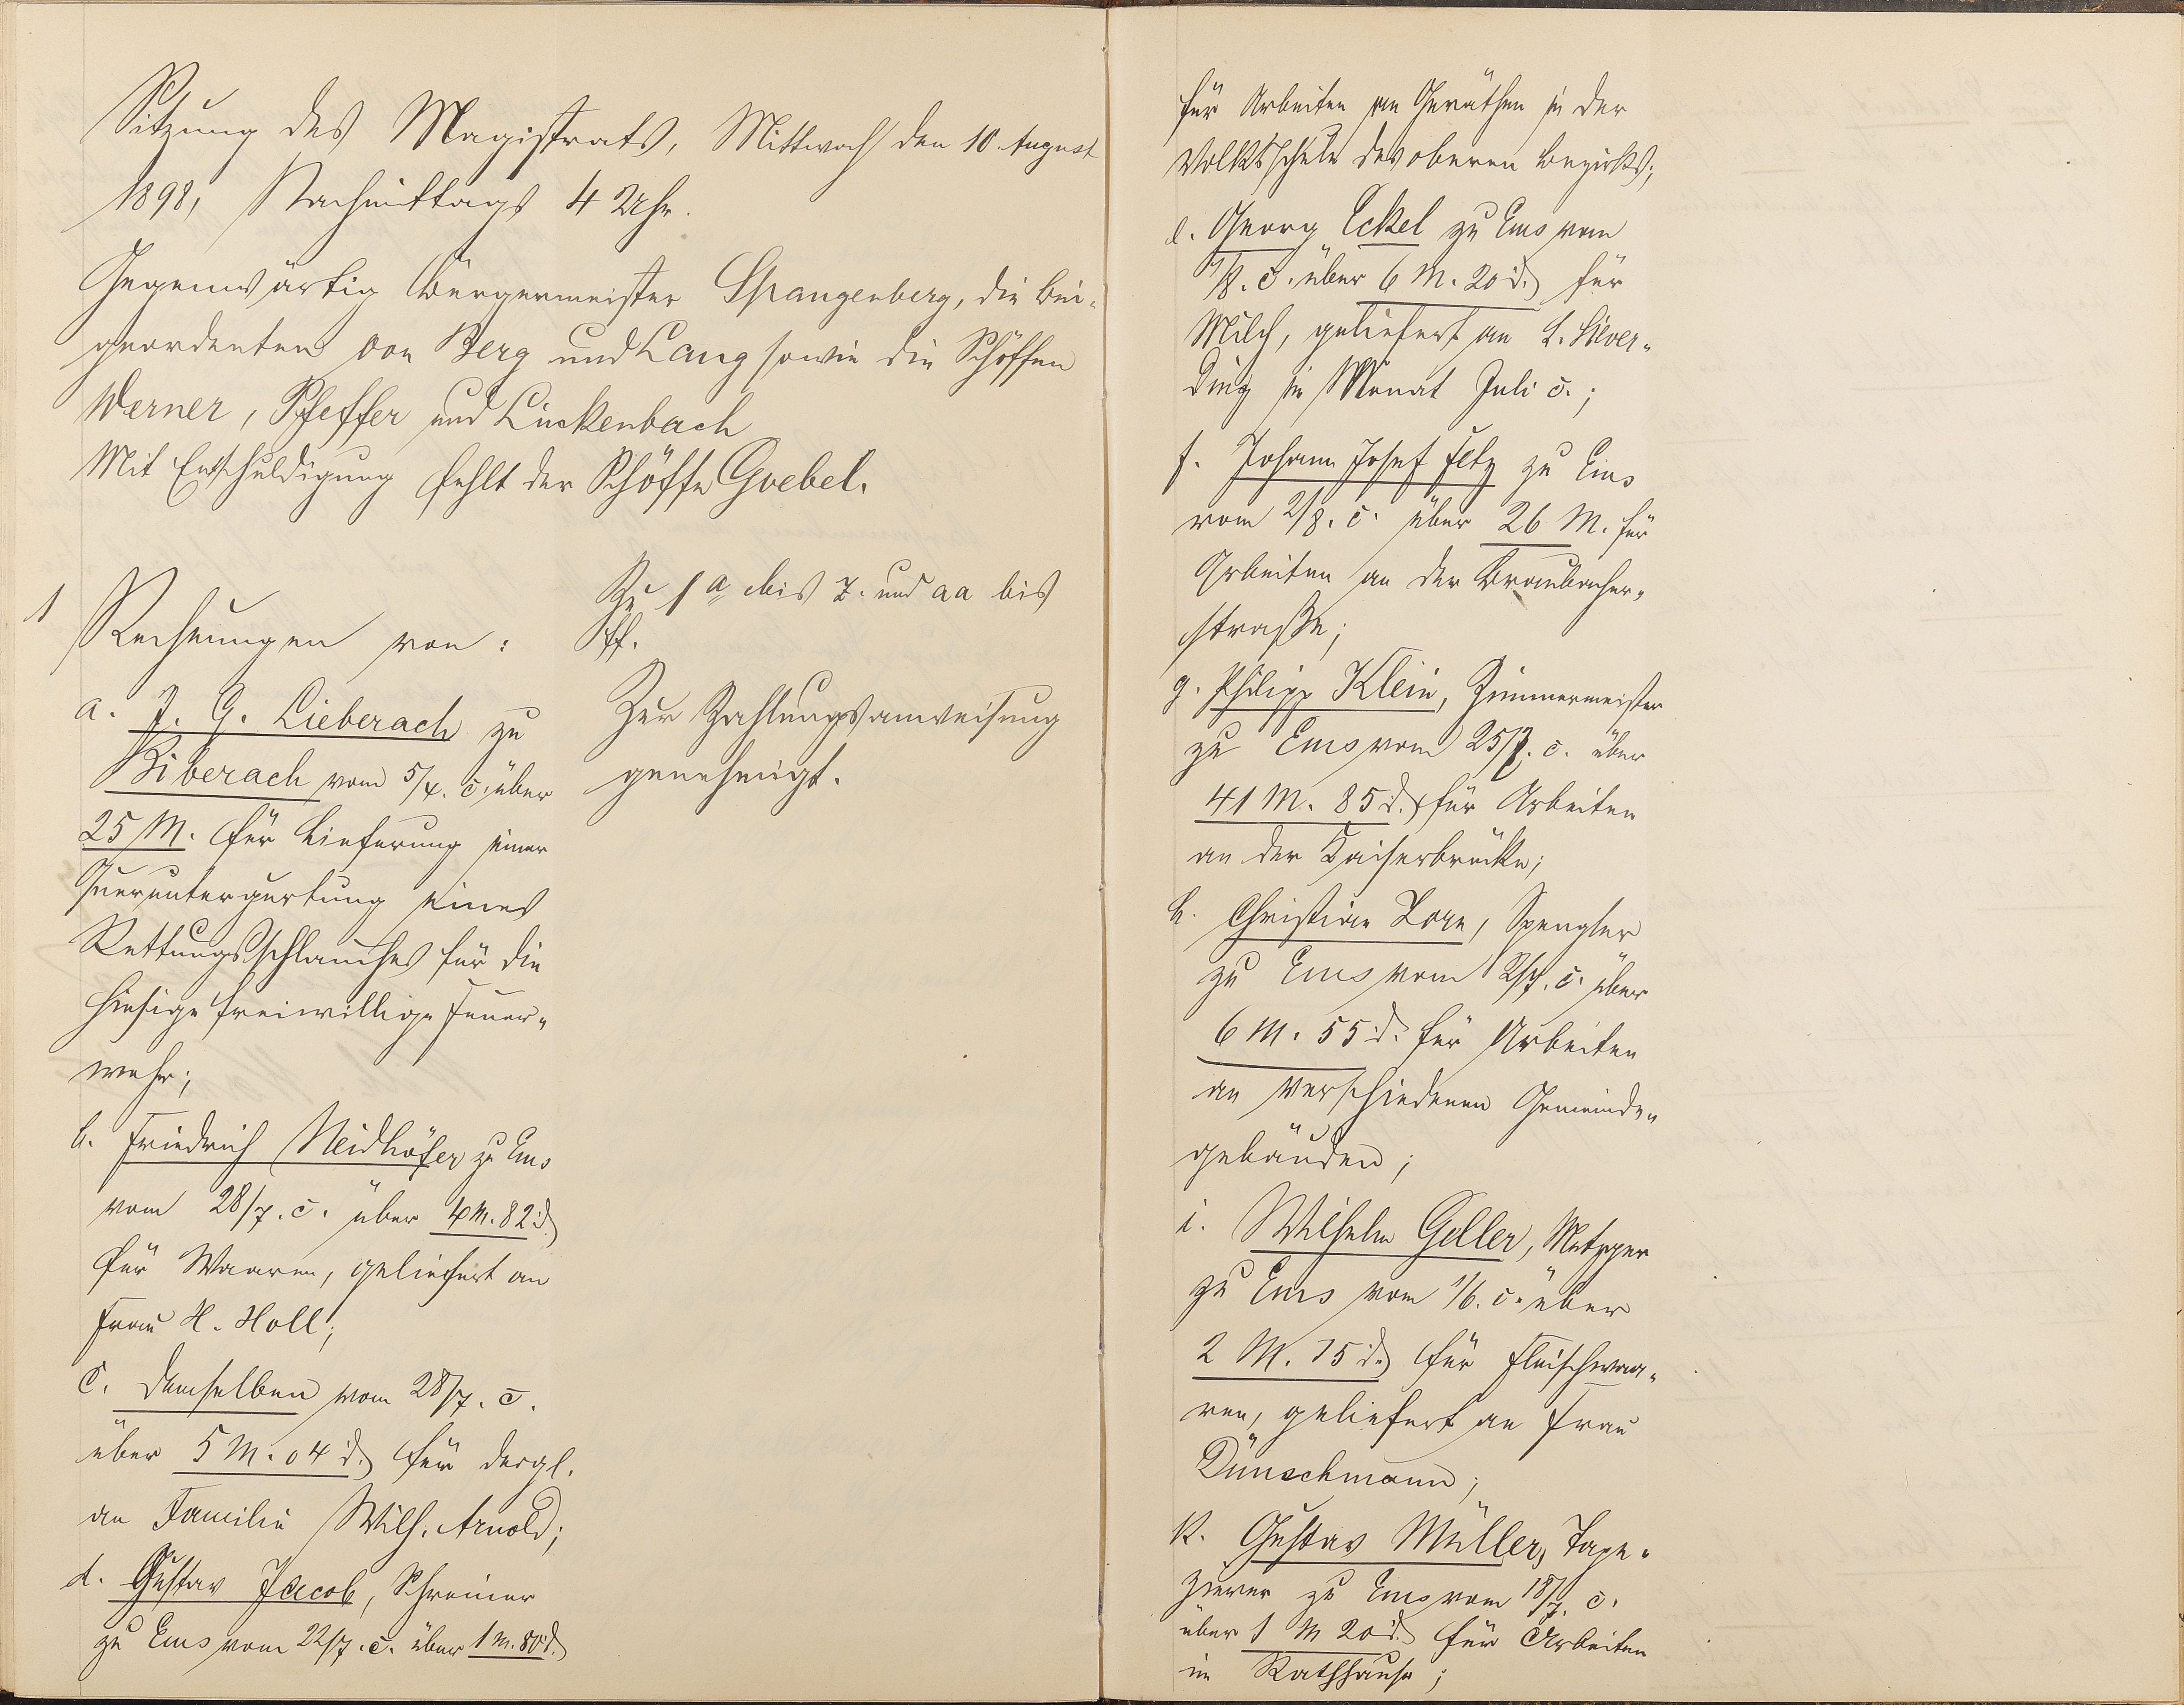 Sitzung des Magistrats, Mittwoch den 10. August
1898, Nachmittags 4 Uhr.
Gegenwärtig Bürgermeister Spangenberg, die Bei-
geordneten von Berg und Lang sowie die Schöffen
Werner, Pfeffer und Linkenbach
Mit Entschuldigung fehlt der Schöffe Goebel.
1 Rechnungen von:
a. J. G. Lieberach zu
Biberach vom 5/4. c. über
25 M. für Lieferung einer
Queruntergurtung eines
Rettungsschlauches für die
hiesige freiwillige Feuer-
wehr;
b. Friedrich Neidhöfer zu Ems
vom 28/7. c. über 4 M. 82 d.
für Waaren, geliefert an
Frau H. Holl;
c. Demselben vom 28/7. c.
über 5 M. 04 d. für dergl.
an Familie Wilh. Arnold;
d. Gustav Jacob, Schreiner
zu Ems vom 22/7. c. über 1 M. 80 d.
Zu 1 a bis z. und aa bis
ff.
Zur Zahlungsanweisung
genehmigt.
für Arbeiten an Geräthen in der
Volksschule des oberen Bezirks;
e. Georg Eckel zu Ems vom
1/8. c. über 6 M. 20 d. für
Milch, geliefert an L. Siever-
ding im Monat Juli c.;
f. Johann Josef Feltz zu Ems
vom 2/8. c. über 26 M. für
Arbeiten an der Braubacher-
straße;
g. Philipp Klein, Zimmermeister
zu Ems vom 25/7. c. über
41 M. 85 d. für Arbeiten
an der Kaiserbrücke;
h. Christian Lorn, Spengler
zu Ems vom 2/7. c. über
6 M. 55 d. für Arbeiten
an verschiedenen Gemeinde-
gebäuden;
i. Wilhelm Geller, Metzger
zu Ems vom 1/6. c. über
2 M. 75 d. für Fleischwaa-
ren, geliefert an Frau
Dünschmann;
k. Gustav Müller, Tape-
zierer zu Ems vom 18/7. c.
über 1 M 20 d. für Arbeiten
im Rathhause;